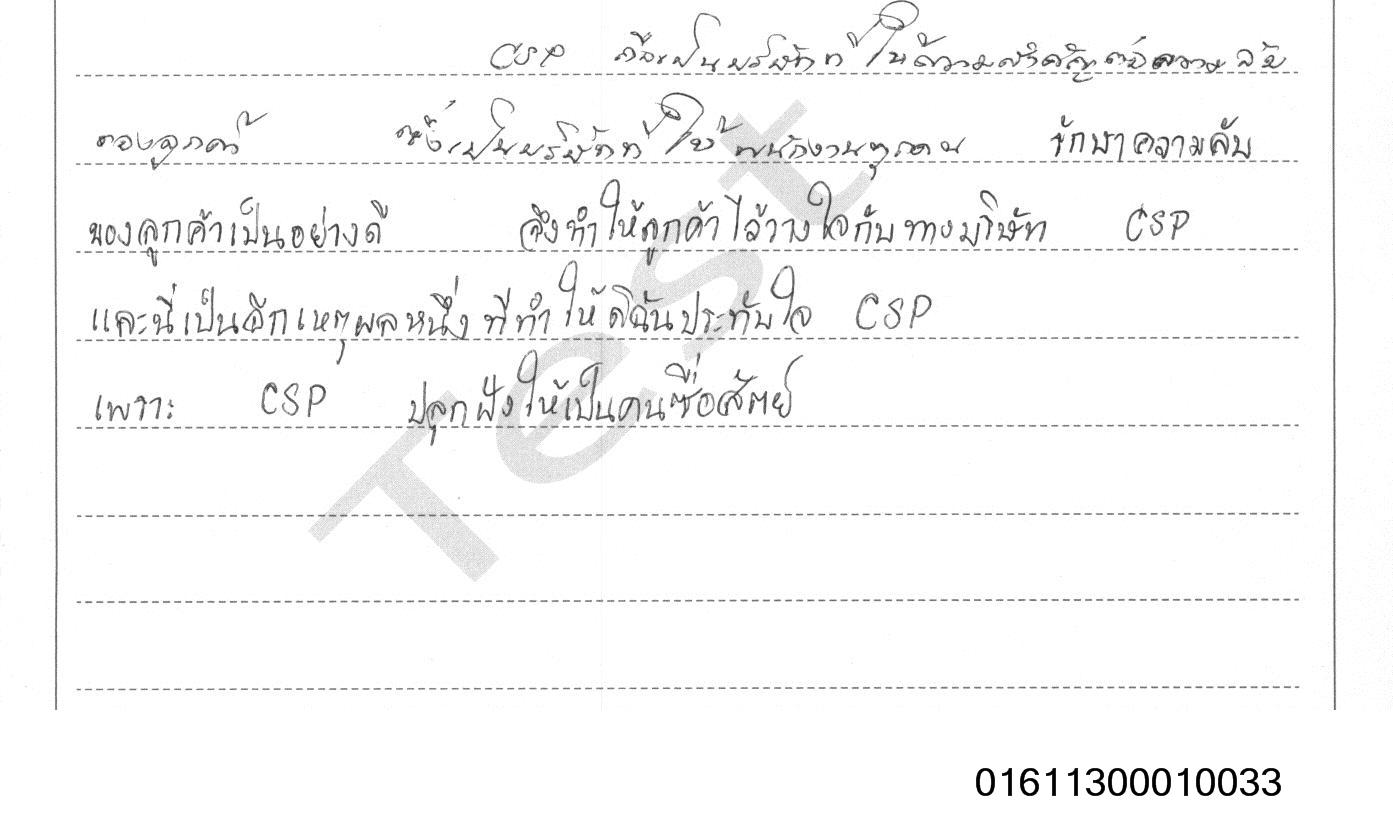 CSP ถือเป็นบริษัทที่ให้ความสำคัญต่อความลับ
ของลูกค้า ซึ่งเป็นบริษัทที่ให้พนักงานทุกคน รักษาความลับ
ของลูกค้าเป็นอย่างดี จึงทำให้ลูกค้าไว้วางใจกับทางบริษัท CSP
และนี่เป็นอีกเหตุผลหนึ่ง ที่ทำให้ดิฉันประทับใจ CSP
เพราะ CSP ปลูกฝังให้เป็นคนซื่อสัตย์
Test
01611300010033